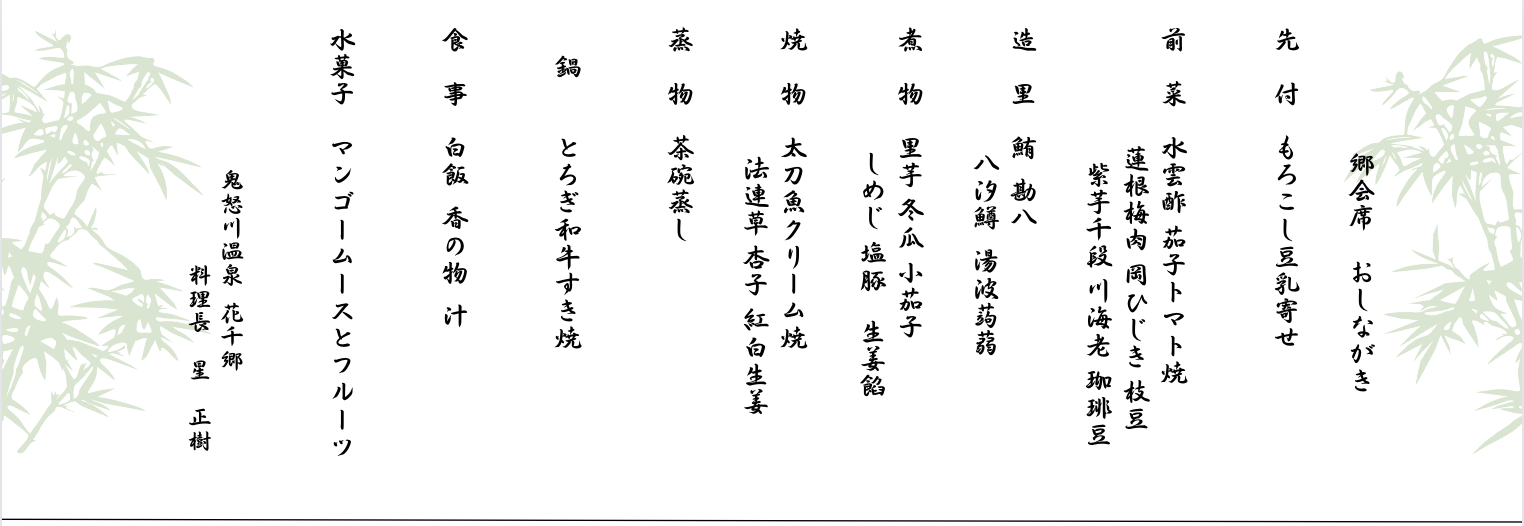 郷会席 おしながき
先付 もろこし豆乳寄せ
前菜 水雲酢 茄子トマト焼
蓮根梅肉 岡ひじき 枝豆
紫芋千段 川海老 珈琲豆
造里 鮪 勘八
八汐鱒 湯波蒟蒻
煮物 里芋 冬瓜 小茄子
しめじ 塩豚 生姜餡
焼物 太刀魚クリーム焼
法連草 杏子 紅白生姜
蒸物 茶碗蒸し
鍋 とろぎ和牛すき焼
食事 白飯 香の物 汁
水菓子 マンゴームースとフルーツ
鬼怒川温泉 花千郷
料理長 星 正樹